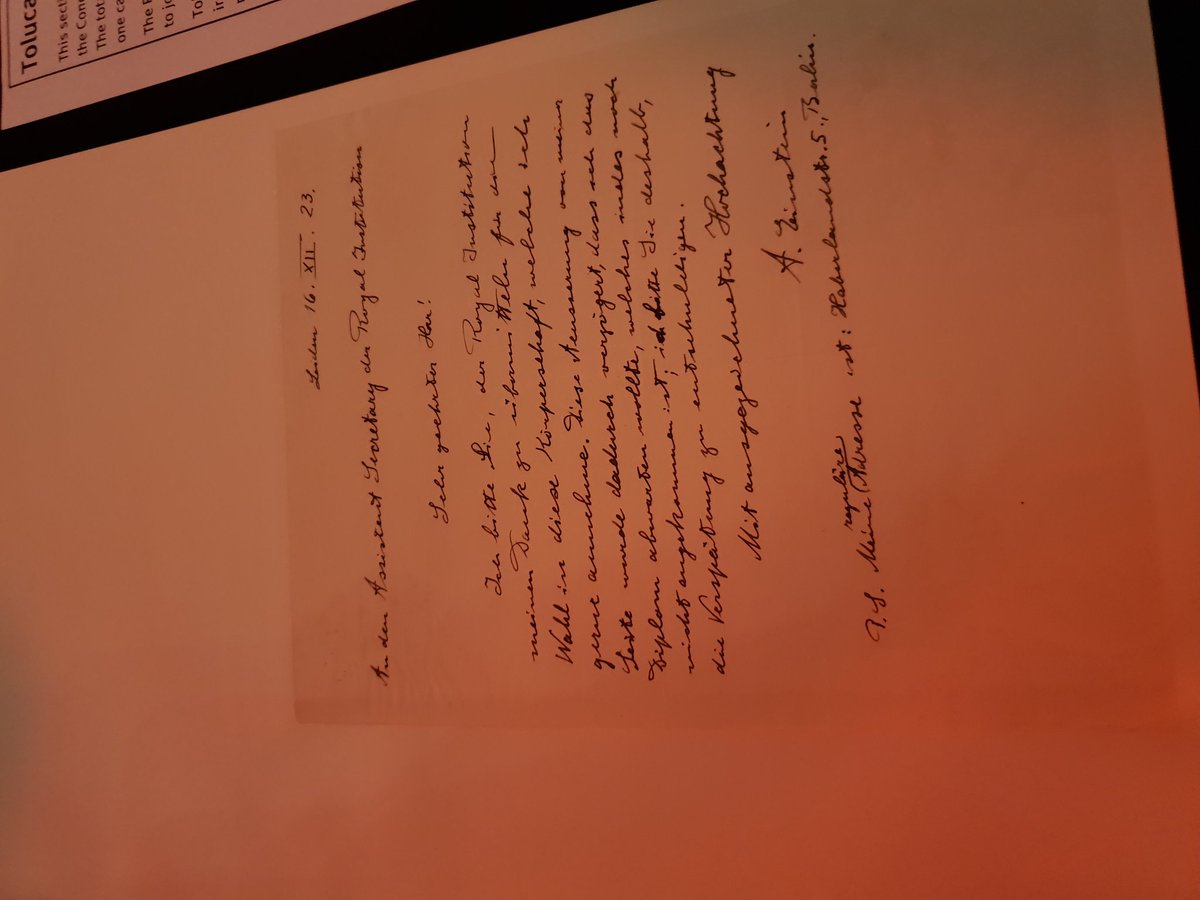 Toluca
This sect
the Cone
The tot
one ca
The F
to jo
To
in
Leiden 16. XII. 23.
An den Assistent Secretary der Royal Institution
Sehr geehrter Herr!
Ich bitte Sie, der Royal Institution
meinen Dank zu übermitteln für die
Wahl in diese Körperschaft, welche ich
gerne annehme. Diese Aeusserung von meiner
Seite wurde dadurch verzögert, dass ich das
Diplom abwarten wollte, welches indes noch
nicht angekommen ist; ich bitte Sie deshalb,
die Verspätung zu entschuldigen.
Mit ausgezeichneter Hochachtung
A. Einstein
P.S. Meine reguläre Adresse ist: Haberlandstr. 5., Berlin.